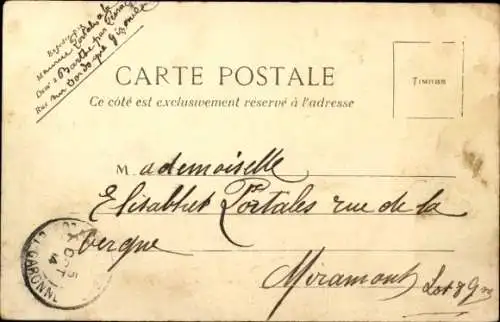 Maurice Portales à la
Barthe par
CARTE POSTALE
Ce côté est exclusivement réservé à l'adresse
TIMBRE
M. ademoiselle
Elisabhet Portales rue de la
vergne
Miramont Lot & Gne
LOT-ET-GARONNE
OCT